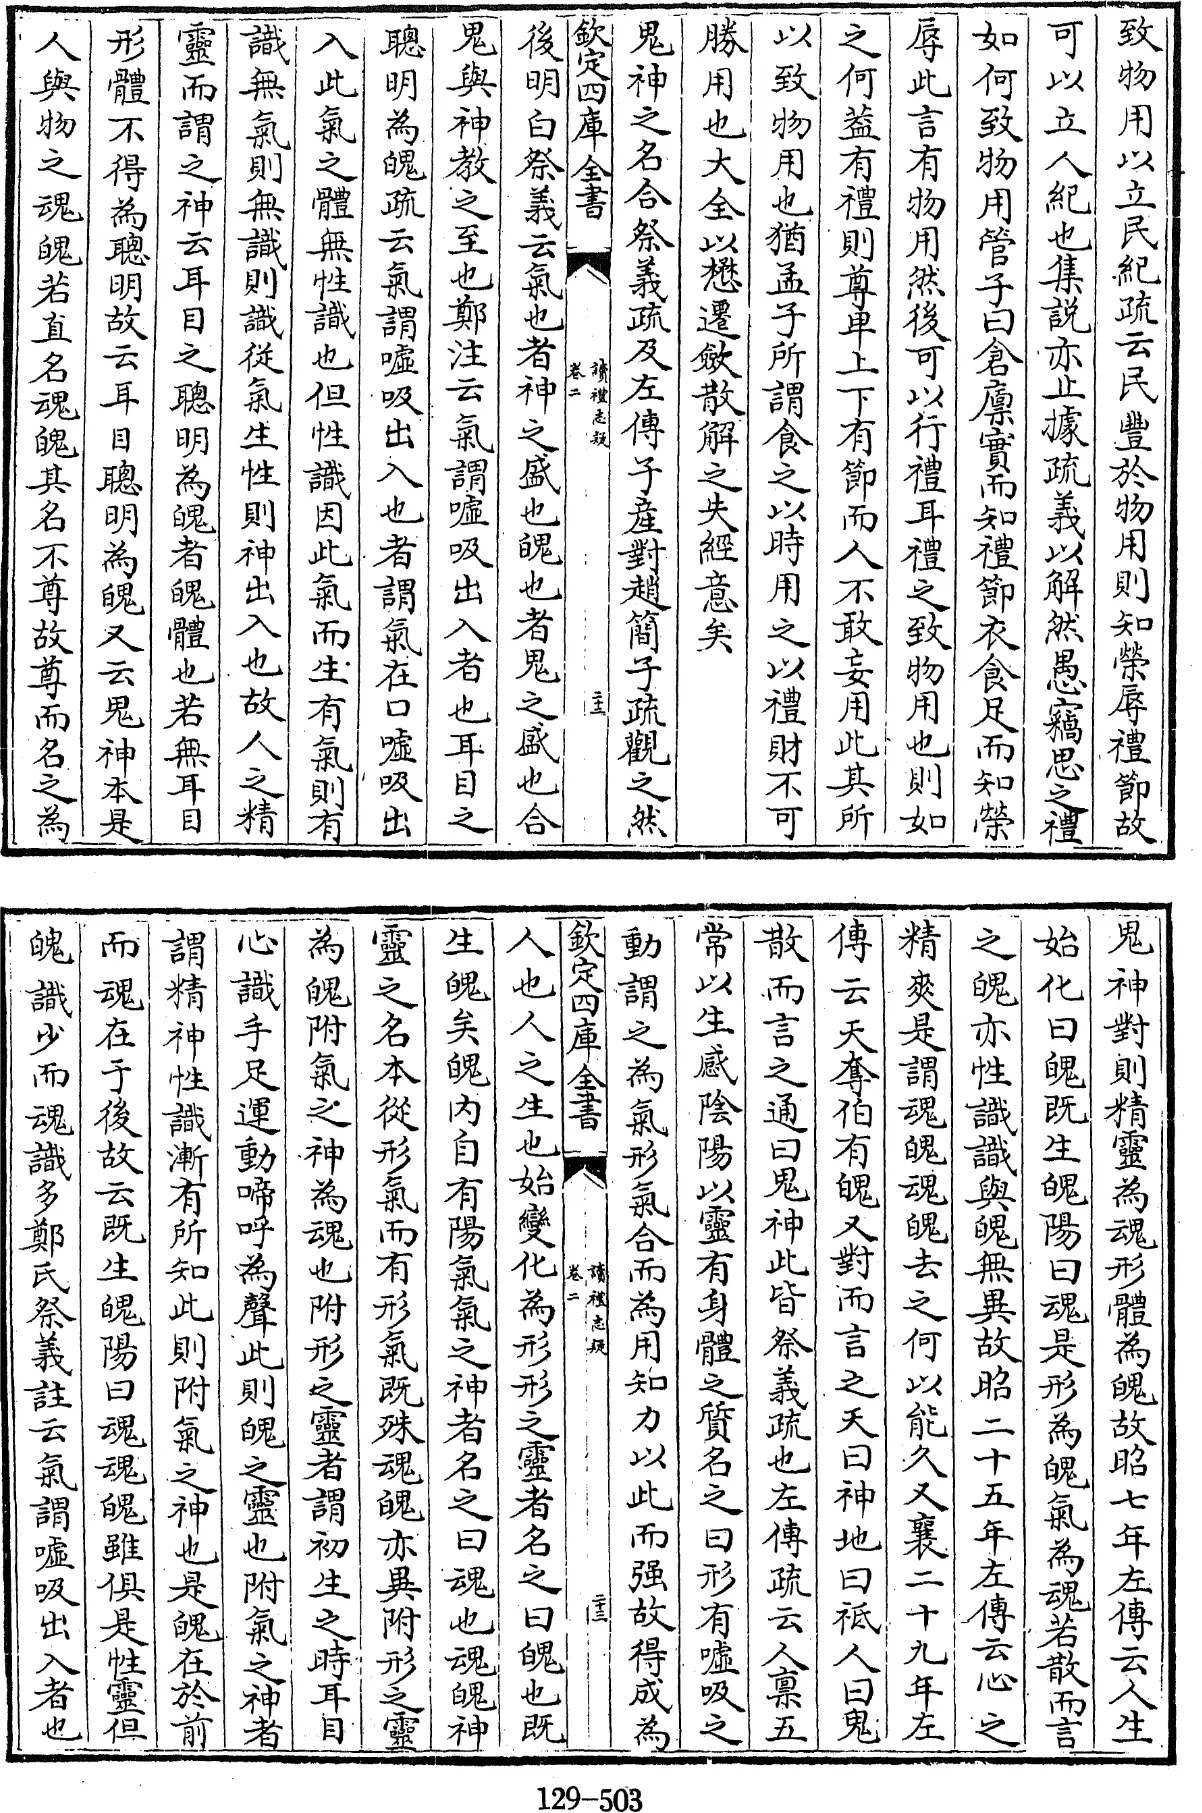 致物用以立民紀疏云民豐於物用則知榮辱禮節故
可以立人紀也集説亦止據疏義以解然愚竊思之禮
如何致物用管子曰倉廩實而知禮節衣食足而知榮
辱此言有物用然後可以行禮耳禮之致物用也則如
之何葢有禮則尊卑上下有節而人不敢妄用此其所
以致物用也猶孟子所謂食之以時用之以禮財不可
勝用也大全以懋遷斂散解之失經意矣
鬼神之名合祭義疏及左傳子産對趙簡子疏觀之然
欽定四庫全書
讀禮志疑
卷二
二十二
後明白祭義云氣也者神之盛也魄也者鬼之盛也合
鬼與神教之至也鄭注云氣謂嘘吸出入者也耳目之
聰明為魄疏云氣謂嘘吸出入也者謂氣在口嘘吸出
入此氣之體無性識也但性識因此氣而生有氣則有
識無氣則無識則識從氣生性則神出入也故人之精
靈而謂之神云耳目之聰明為魄者魄體也若無耳目
形體不得為聰明故云耳目聰明為魄又云鬼神本是
人與物之魂魄若直名魂魄其名不尊故尊而名之為
鬼神對則精靈為魂形體為魄故昭七年左傳云人生
始化曰魄既生魄陽曰魂是形為魄氣為魂若散而言
之魄亦性識識與魄無異故昭二十五年左傳云心之
精爽是謂魂魄魂魄去之何以能久又襄二十九年左
傳云天奪伯有魄又對而言之天曰神地曰祗人曰鬼
散而言之通曰鬼神此皆祭義疏也左傳疏云人禀五
常以生感陰陽以靈有身體之質名之曰形有嘘吸之
動謂之為氣形氣合而為用知力以此而强故得成為
欽定四庫全書
讀禮志疑
卷二
二十三
人也人之生也始變化為形形之靈者名之曰魄也既
生魄矣魄内自有陽氣氣之神者名之曰魂也魂魄神
靈之名本從形氣而有形氣既殊魂魄亦異附形之靈
為魄附氣之神為魂也附形之靈者謂初生之時耳目
心識手足運動啼呼為聲此則魄之靈也附氣之神者
謂精神性識漸有所知此則附氣之神也是魄在於前
而魂在于後故云既生魄陽曰魂魂魄雖俱是性靈但
魄識少而魂識多鄭氏祭義註云氣謂嘘吸出入者也
129-503